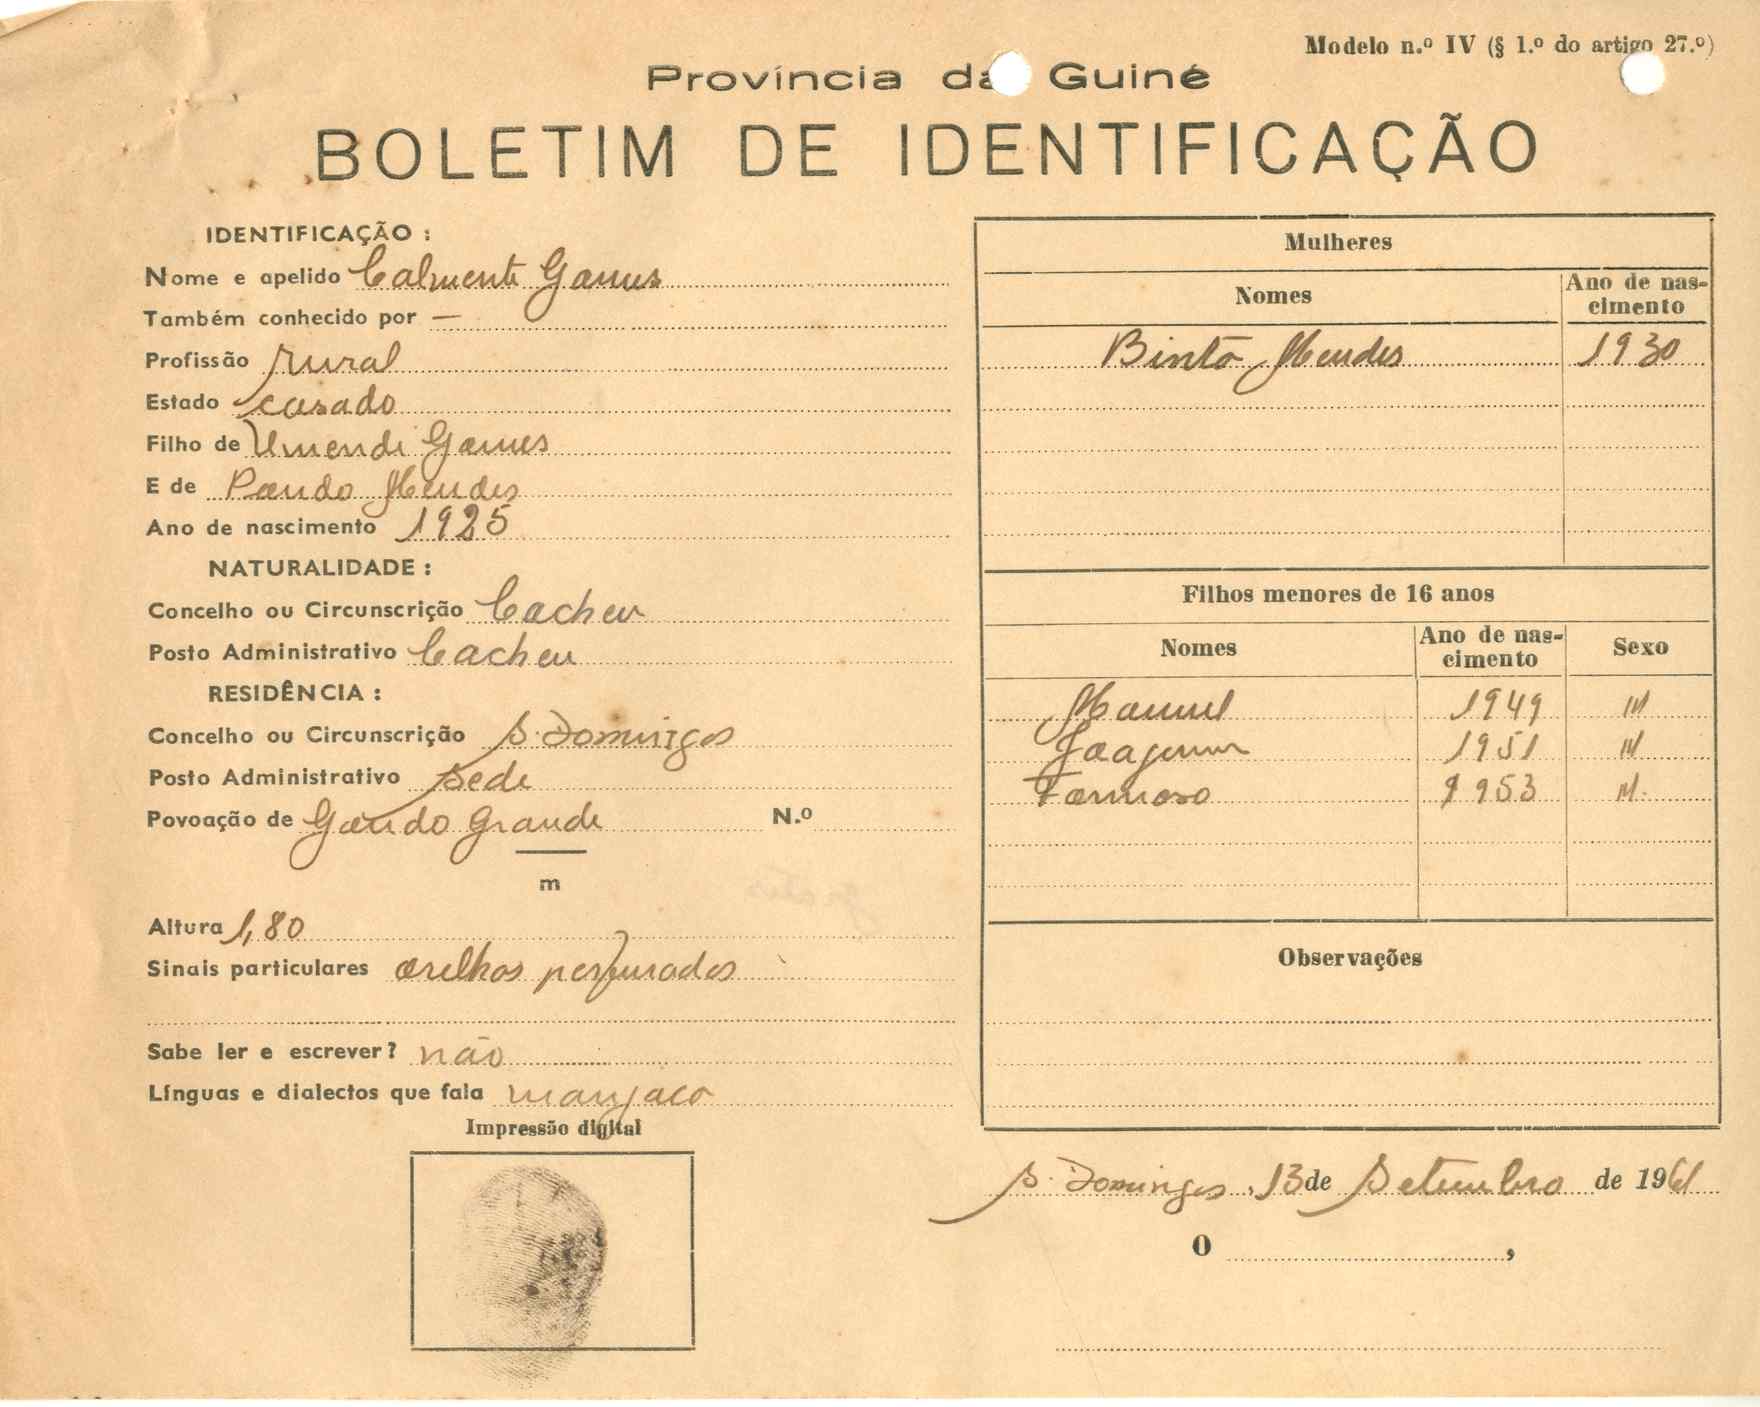 Modelo n.º IV (§ 1.º do artigo 27.º)
Província da Guiné
BOLETIM DE IDENTIFICAÇÃO
IDENTIFICAÇÃO :
Nome e apelido Calmente Gomes
Também conhecido por —
Profissão rural
Estado casado
Filho de Umendi Gomes
E de Pando Mendes
Ano de nascimento 1925
NATURALIDADE :
Concelho ou Circunscrição Cacheu
Posto Administrativo Cacheu
RESIDÊNCIA :
Concelho ou Circunscrição S. Domingos
Posto Administrativo Sede
Povoação de Gando Grande N.º
m
Altura 1,80
Sinais particulares orelhas perfuradas
Sabe ler e escrever? não
Línguas e dialectos que fala manjaco
Impressão digital
Mulheres
Nomes Ano de nas-
cimento
Binta Mendes 1930
Filhos menores de 16 anos
Nomes Ano de nas- Sexo
cimento
Manuel 1949 M
Joaquim 1951 M
Formoso 1953 M.
Observações
S. Domingos, 13 de Setembro de 1961
O ,